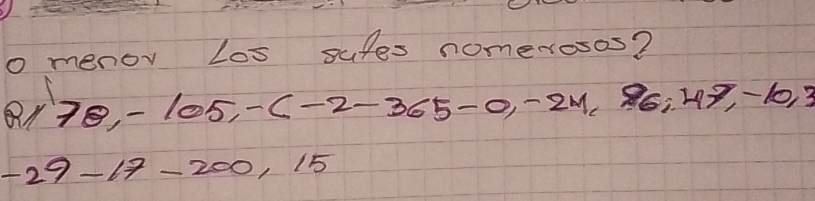 o menor Los sutes nomerosos?
R/ 78, - 105, - ( - 2 - 365 - 0, - 24, 86; 47, - 10, 3
- 29 - 17 - 200, 15